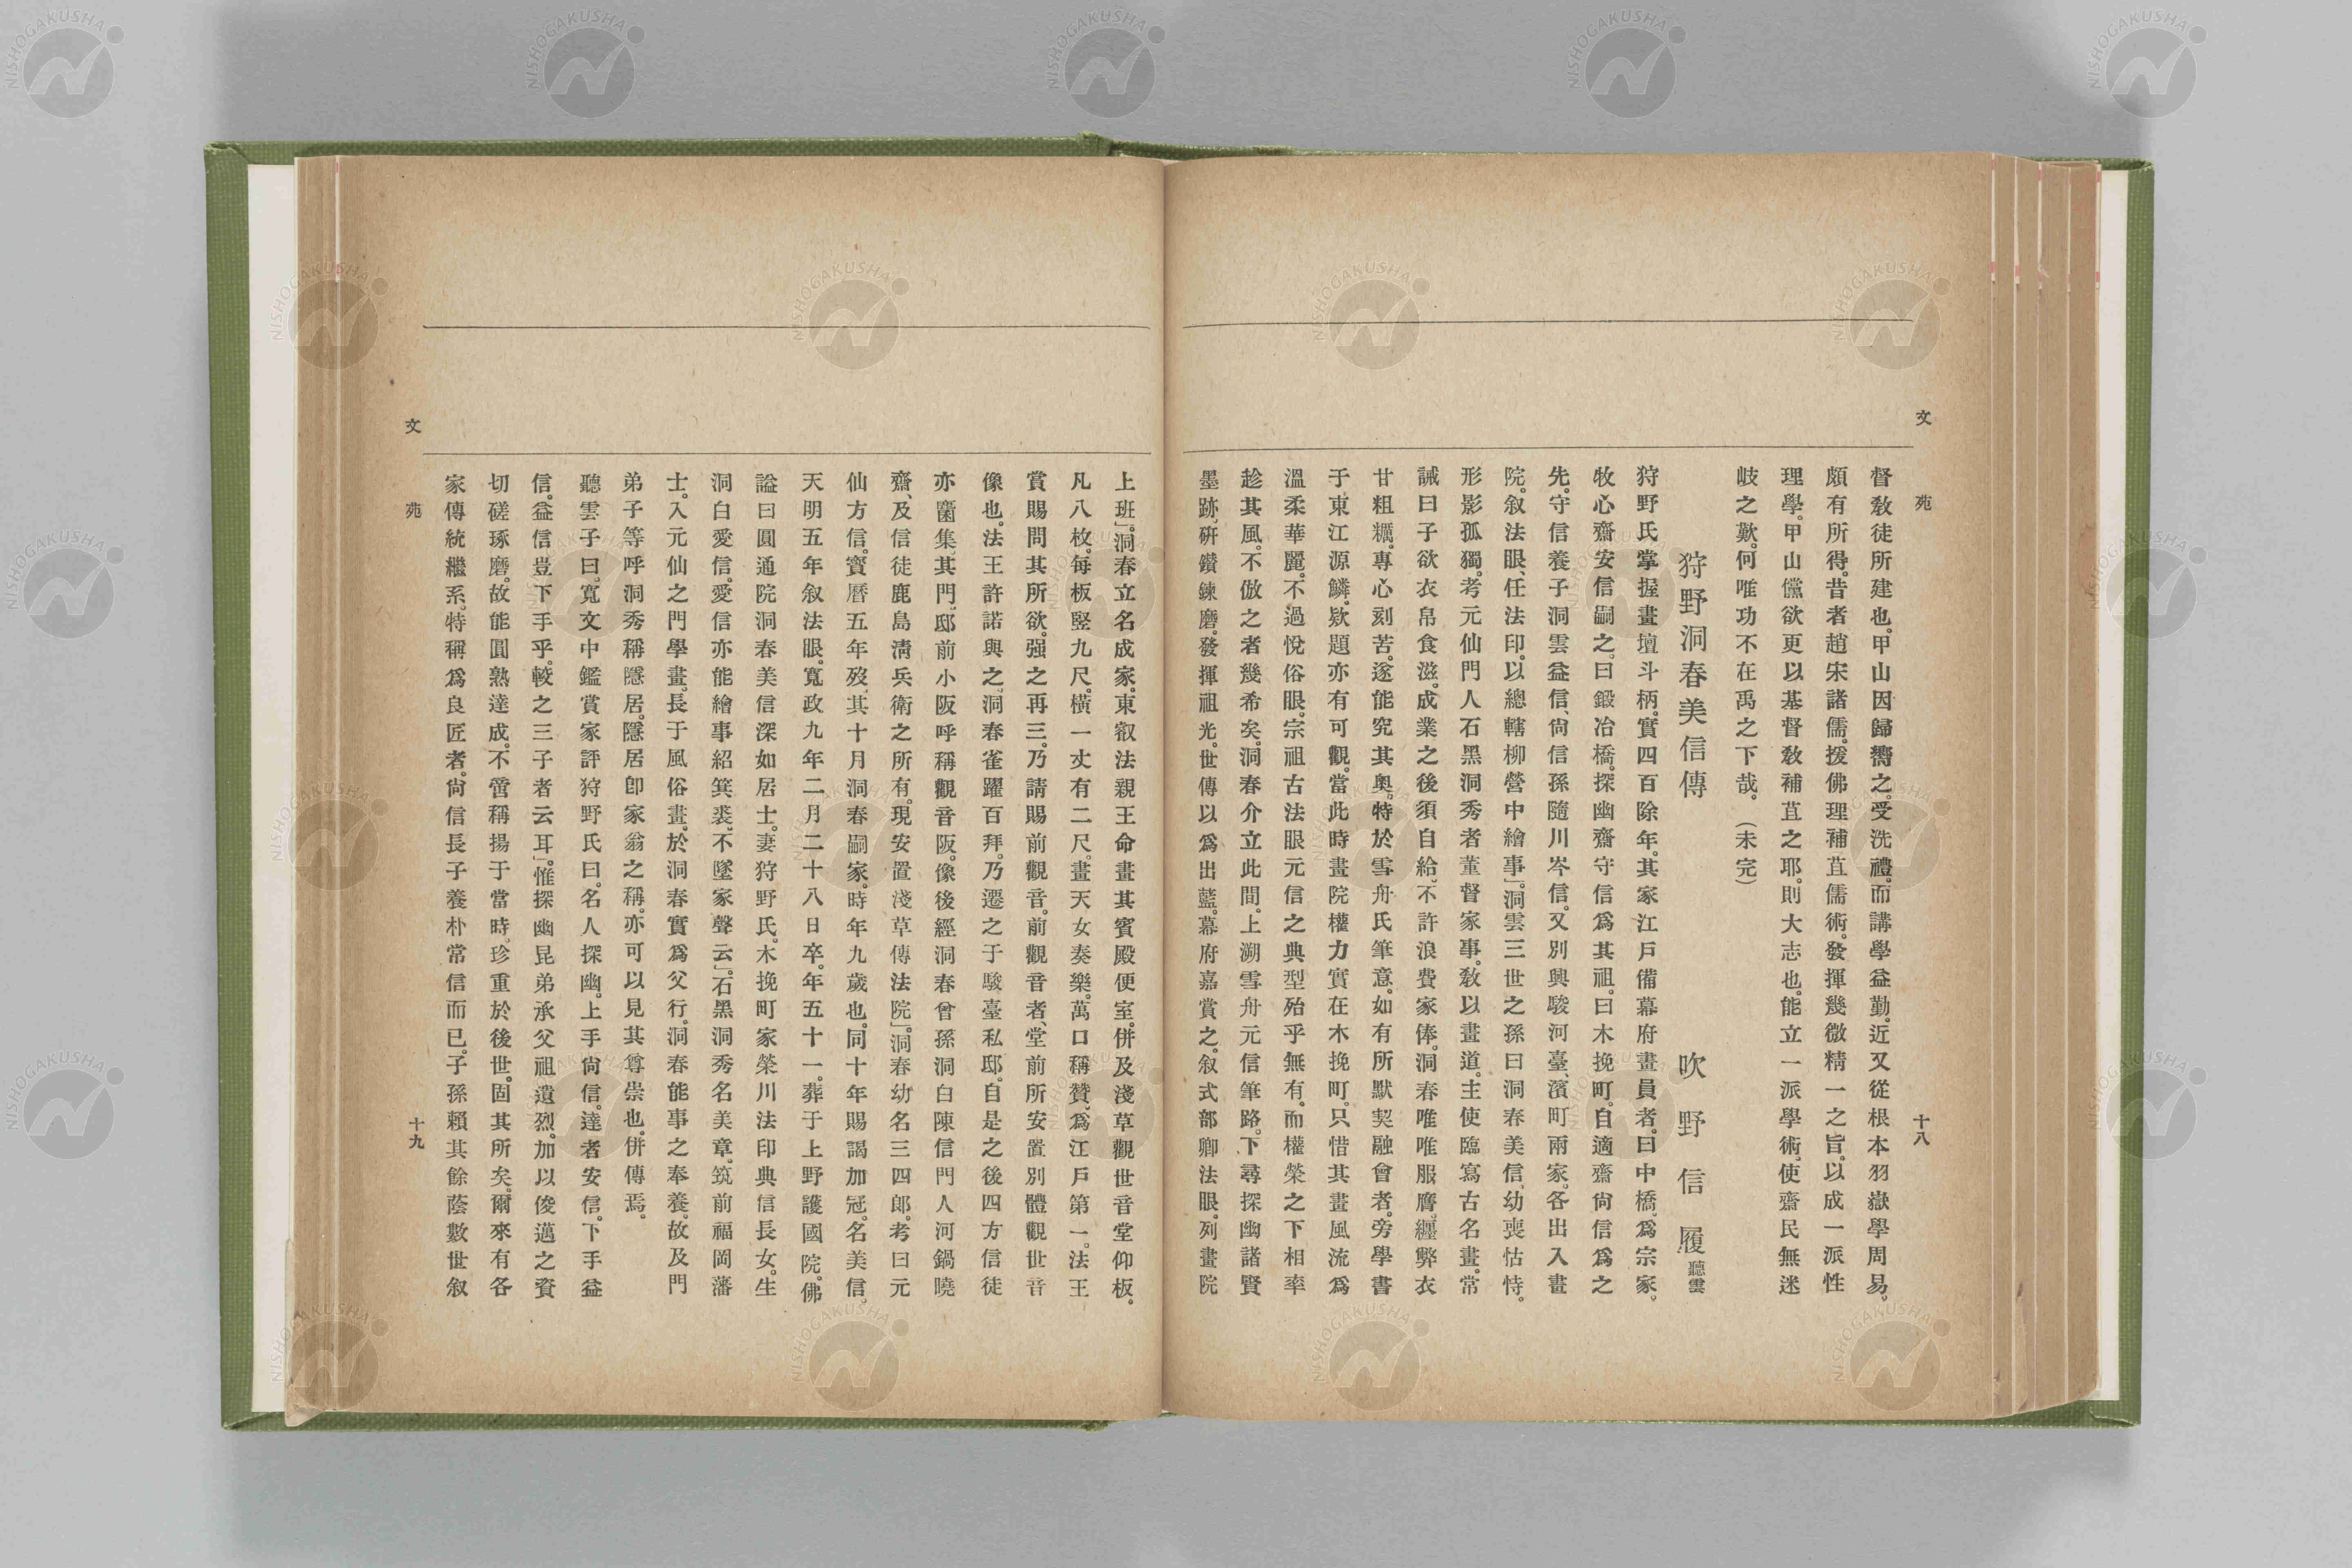 文
苑
十八
督教徒所建也。甲山因歸嚮之。受洗禮。而講學益勤。近又從根本羽嶽學周易。
頗有所得。昔者趙宋諸儒。援佛理補苴儒術。發揮幾微精一之旨。以成一派性
理學。甲山儻欲更以基督教補苴之耶。則大志也。能立一派學術。使齋民無迷
岐之歎。何唯功不在禹之下哉。(未完)
狩野洞春美信傳
吹野信履 聽雲
狩野氏掌握畫壇斗柄。實四百除年。其家江戶備幕府畫員者。曰中橋、爲宗家。
牧心齋安信嗣之、曰鍛冶橋。探幽齋守信爲其祖。曰木挽町。自適齋尙信爲之
先。守信養子洞雲益信、尙信孫隨川岑信。又別興駿河臺、濱町兩家。各出入畫
院。敘法眼、任法印。以總轄柳營中繪事」。洞雲三世之孫曰洞春美信、幼喪怙恃。
形影孤獨。考元仙門人石黑洞秀者董督家事。教以畫道。主使臨寫古名畫。常
誡曰子欲衣帛食滋。成業之後須自給、不許浪費家俸。洞春唯唯服膺。纒弊衣
甘粗糲。專心刻苦。遂能究其奧。特於雪舟氏筆意。如有所默契融會者。旁學書
于東江源鱗。欵題亦有可觀。當此時畫院權力實在木挽町。只惜其畫風流爲
溫柔華麗。不過悅俗眼。宗祖古法眼元信之典型殆乎無有。而權榮之下相率
趁其風。不倣之者幾希矣。洞春介立此間。上溯雪舟元信筆路。下尋探幽諸賢
墨跡、硏鑽鍊磨。發揮祖光。世傳以爲出藍。幕府嘉賞之。敘式部卿法眼。列畫院
上班」。洞春立名成家。東叡法親王命畫其賓殿便室。併及淺草觀世音堂仰板。
凡八枚。每板竪九尺。橫一丈有二尺。畫天女奏樂。萬口稱贊。爲江戶第一。法王
賞賜問其所欲。强之再三。乃請賜前觀音。前觀音者、堂前所安置別體觀世音
像也。法王許諾與之、洞春雀躍百拜。乃遷之于駿臺私邸。自是之後四方信徒
亦麕集、其門、邸前小阪呼稱觀音阪。像後經洞春曾孫洞白陳信門人河鍋曉
齋、及信徒鹿島淸兵衛之所有。現安置淺草傳法院」。洞春幼名三四郞。考曰元
仙方信。寶曆五年歿、其十月洞春嗣家。時年九歲也。同十年賜謁加冠。名美信。
天明五年敘法眼。寬政九年二月二十八日卒。年五十一。葬于上野護國院。佛
諡曰圓通院洞春美信深如居士。妻狩野氏。木挽町家榮川法印典信長女。生
洞白愛信。愛信亦能繪事紹箕裘。不墜家聲云」。石黑洞秀名美章。筑前福岡藩
士。入元仙之門學畫、長于風俗畫。於洞春實爲父行。洞春能事之奉養。故及門
弟子等呼洞秀稱隱居。隱居卽家翁之稱。亦可以見其尊崇也。併傳焉。
聽雲子曰。寬文中鑑賞家評狩野氏曰。名人探幽。上手尙信。達者安信。下手益
信。益信豈下手乎。較之三子者云耳」。惟探幽昆弟承父祖遺烈。加以俊邁之資
切磋琢磨。故能圓熟達成。不啻稱揚于當時。珍重於後世。固其所矣。爾來有各
家傳統繼系。特稱爲良匠者。尙信長子養朴常信而已。子孫賴其餘蔭數世敘
文
苑
十九